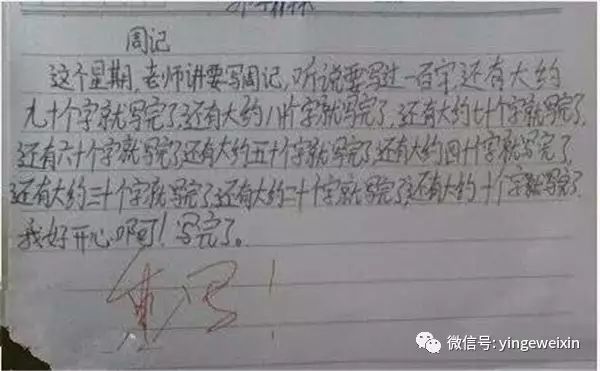 周记
这个星期,老师讲要写周记,听说要写过一百字,还有大约
九十个字就写完了,还有大约八十个字就写完了,还有大约七十个字就写完了,
还有六十个字就写完了,还有大约五十个字就写完了,还有大约四十个字就写完了,
还有大约三十个字就写完了,还有大约二十个字就写完了,还有大约十个字就写完了,
我好开心啊!写完了。
重写!
微信号: yingeweixin